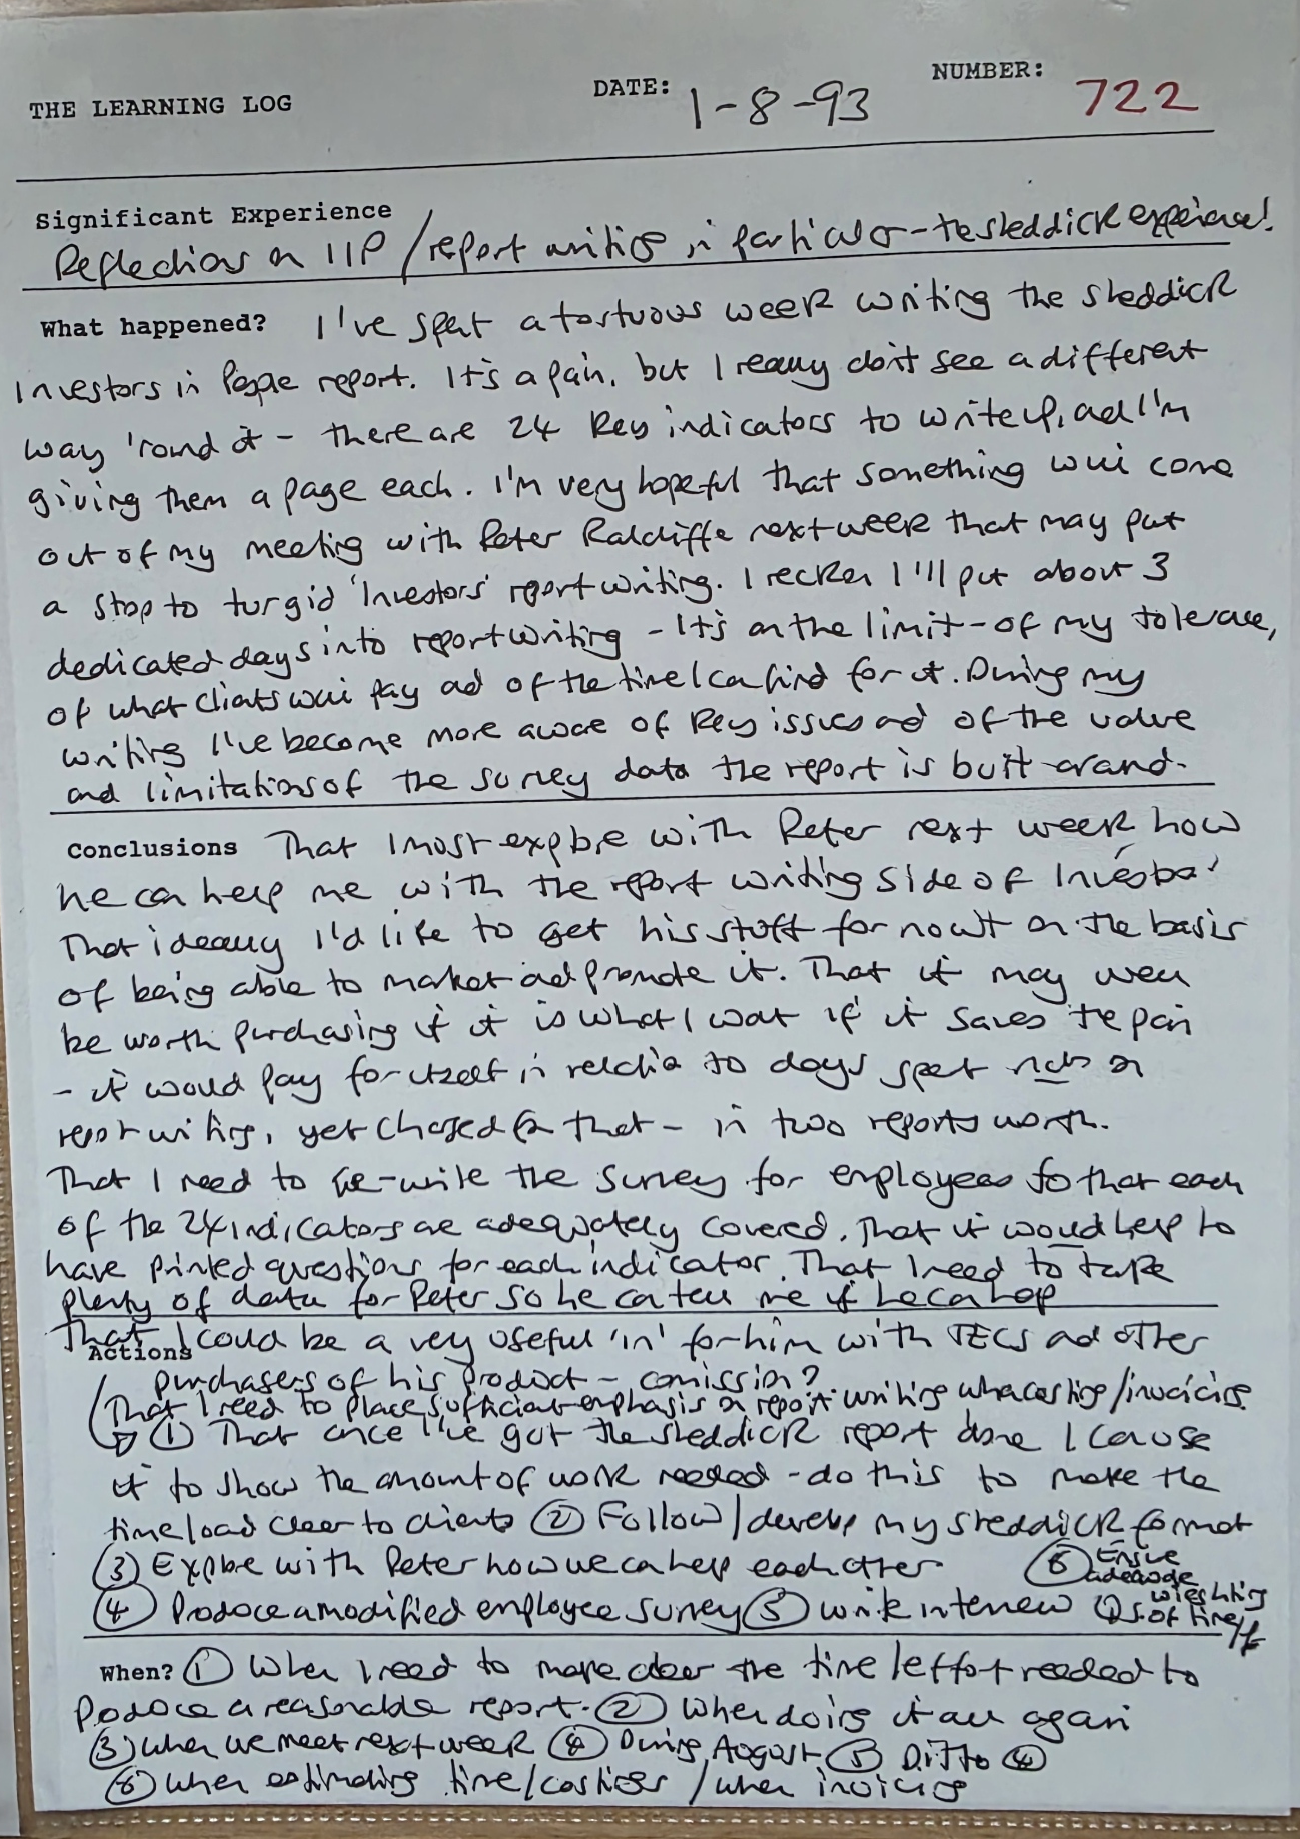 THE LEARNING LOG DATE: 1-8-93 NUMBER: 722
Significant Experience
Reflections on IIP / report writing in particular - the Sheddick experience!
What happened? I've spent a tortuous week writing the Sheddick
Investors in People report. It's a pain, but I really don't see a different
way 'round it - there are 24 key indicators to write up, and I'm
giving them a page each. I'm very hopeful that something will come
out of my meeting with Peter Ralcliffe next week that may put
a stop to turgid 'Investors' report writing. I recken I'll put about 3
dedicated days into report writing - It's on the limit - of my tolerance,
of what clients will pay and of the time I can find for it. During my
writing I've become more aware of key issues and of the value
and limitations of the survey data the report is built around.
Conclusions That I must explore with Peter next week how
he can help me with the report writing side of 'Investors'
That ideally I'd like to get his stuff for nowt on the basis
of being able to market and promote it. That it may well
be worth purchasing if it is what I want if it saves the pain
- it would pay for itself in relation to days spent on
report writing, yet charged for that - in two reports worth.
That I need to re-write the survey for employees so that each
of the 24 indicators are adequately covered. That it would help to
have printed questions for each indicator. That I need to take
plenty of data for Peter so he can tell me if he can help
That I could be a very useful 'in' for him with TECS and other
Actions
purchasers of his product - comission?
That I need to place sufficient emphasis on report writing when costing/invoicing.
① That once I've got the Sheddick report done I can use
it to show the amount of work needed - do this to make the
time load clear to clients ② Follow/develop my Sheddick format
③ Explore with Peter how we can help each other ⑥ Ensure adequate
④ Produce a modified employee survey ⑤ Write interview Qs weighting of time/£
When? ① When I need to make clear the time/effort needed to
produce a reasonable report. ② When doing it all again
③ When we meet next week ④ During August ⑤ Ditto ④
⑥ When estimating time/costings / when invoicing